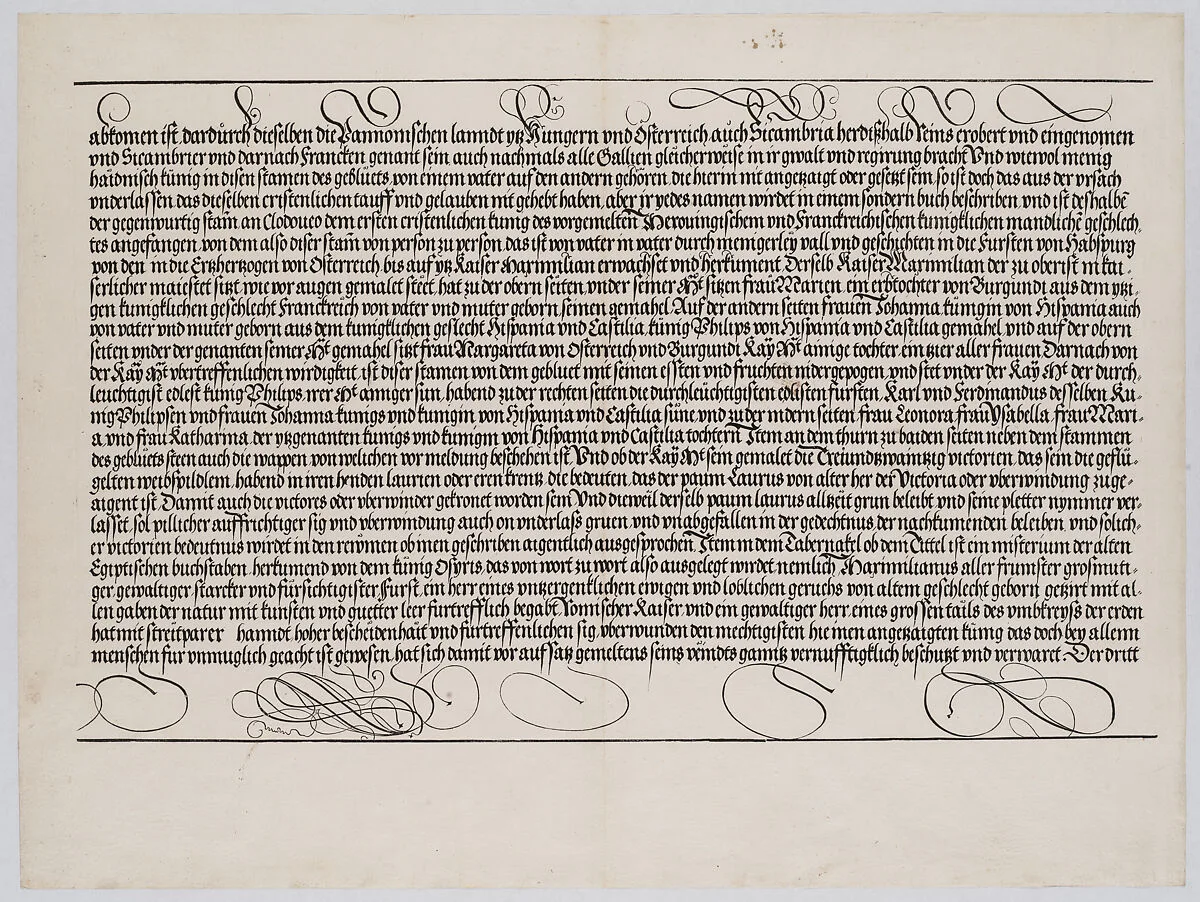 abkomen ist. dardurch dieselben die Pannonischen lanndt ytz Hungern vnd Osterreich auch Sicambria herdißhalb Reins erobert vnd eingenomen
vnd Sicambrier vnd darnach Francken genant sein. auch nachmals alle Gallien gleicherweise in ir gwalt vnd regirung bracht Vnd wiewol menig
haidnisch künig in disen stamen des geblüets, von einem vater auf den andern gehören, die hierin mit angetzaigt oder gesetzt sein, so ist doch das aus der vrsach
vnderlassen, das dieselben cristenlichen tauff vnd gelauben nit gehebt haben, aber ir yedes namen wirdet in einem sondern buch beschriben, vnd ist deshalbē
der gegenwurtig stam̄ an Clodoueo dem ersten cristenlichen kunig des vorgemelten Merouingischem vnd Franckreichischen kunigklichen mandlichē geschlech,
tes angefangen, von dem also diser stam̄ von person zu person das ist von vater in vater durch menigerley vall vnd geschichten in die Fursten von Habspurg
von den in die Ertzhertzogen von Osterreich, bis auf ytz Kaiser Maximilian erwachset vnd herkument. Derselb Kaiser Maximilian der zu oberist in kai-
serlicher maiestet sitzt, wie vor augen gemalet steet, hat zu der obern seiten, vnder seiner Mt sitzen frau Marien, ein erbtochter von Burgundi aus dem ytzi-
gen kunigklichen geschlecht Franckreich von vater vnd muter geborn seinen gemahel. Auf der andern seiten frauen Johanna künigin von Hispania auch
von vater vnd muter geborn aus dem kunigklichen geslecht Hispania vnd Castilia, künig Philips von Hispania vnd Castilia gemahel, vnd auf der obern
seiten vnder der genanten seiner Mt gemahel sitzt frau Margareta von Osterreich vnd Burgundi Kay Mt ainige tochter, ein tzier aller frauen, Darnach von
der Kaÿ Mt vbertreffenlichen wirdigkeit, ist diser stamen von dem gebluet mit seinen essten vnd fruchten nidergepogen, vnd stet vnder der Kay Mt der durch,
leuchtigist edlest kunig Philips, irer Mt ainiger sun, habend zu der rechten seiten die durchleüchtigisten edlisten fürsten, Karl vnd Ferdinandus desselben Kü-
nig Philipsen vnd frauen Johanna kunigs vnd kunigin von Hispania vnd Castilia süne, vnd zu der indern seiten, frau Leonora frau Ysabella, frau Mari-
a, vnd frau Katharina, der ytzgenanten kunigs vnd kunigin von Hispania vnd Castilia tochtern. Item an dem thurn zu baiden seiten neben dem stammen
des geblüets steen auch die wappen, von welichen vor meldung beschehen ist Vnd ob der Kay Mt sein gemalet die Treiundtzwaintzig victorien, das sein die geflü-
gelten weibspildlem, habend in iren henden laurien oder eren krentz, die bedeuten, das der paum Laurus von alter her der Victoria oder vberwindung zuge-
aigent ist. Damit auch die victores oder vberwinder gekronet worden sein Vnd dieweil derselb paum laurus alltzeit grun beleibt vnd seine pletter nymmer ver-
lasset, sol pillicher auffrichtiger sig vnd vberwindung auch on vnderlaß gruen vnd vnabgefallen in der gedechtnus der nachkumenden beleiben, vnd solich-
er victorien bedeutnus wirdet in den reiomen ob inen geschriben aigentlich ausgesprochen, Item in dem Tabernakel ob dem Tittel ist ein misterium der alten
Egiptischen buchstaben, herkumend von dem künig Osyris, das von wort zu wort also ausgelegt wirdet, nemlich Maximilianus aller frumster grosmuti-
ger gewaltiger starcker vnd fürsichtigister Furst, ein herr eines vntzergenklichen ewigen vnd loblichen geruchs von altem geschlecht geborn getzirt mit al-
len gaben der natur mit kunsten vnd guetter leer furtrefflich begabt Romischer Kaiser vnd ein gewaltiger herr eines grossen tails des vmbkreyß der erden
hat mit streitparer hanndt hoher bescheidenhait vnd furtreffenlichen sig, vberwunden den mechtigisten hie inen angetzaigten künig das doch bey allenn
menschen fur vnmuglich geacht ist gewesen, hat sich damit vor aufsatz gemeltens seins veindts gantz vernufftigklich beschutzt vnd verwaret. Der dritt